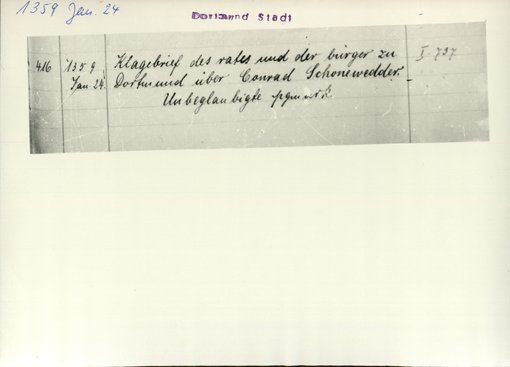 1359 Jan. 24
Dortmund Stadt
416 1359 Klagebrief des rates und der bürger zu I 737
Jan 24. Dortmund über Conrad Schonewedder.
Unbeglaubigte